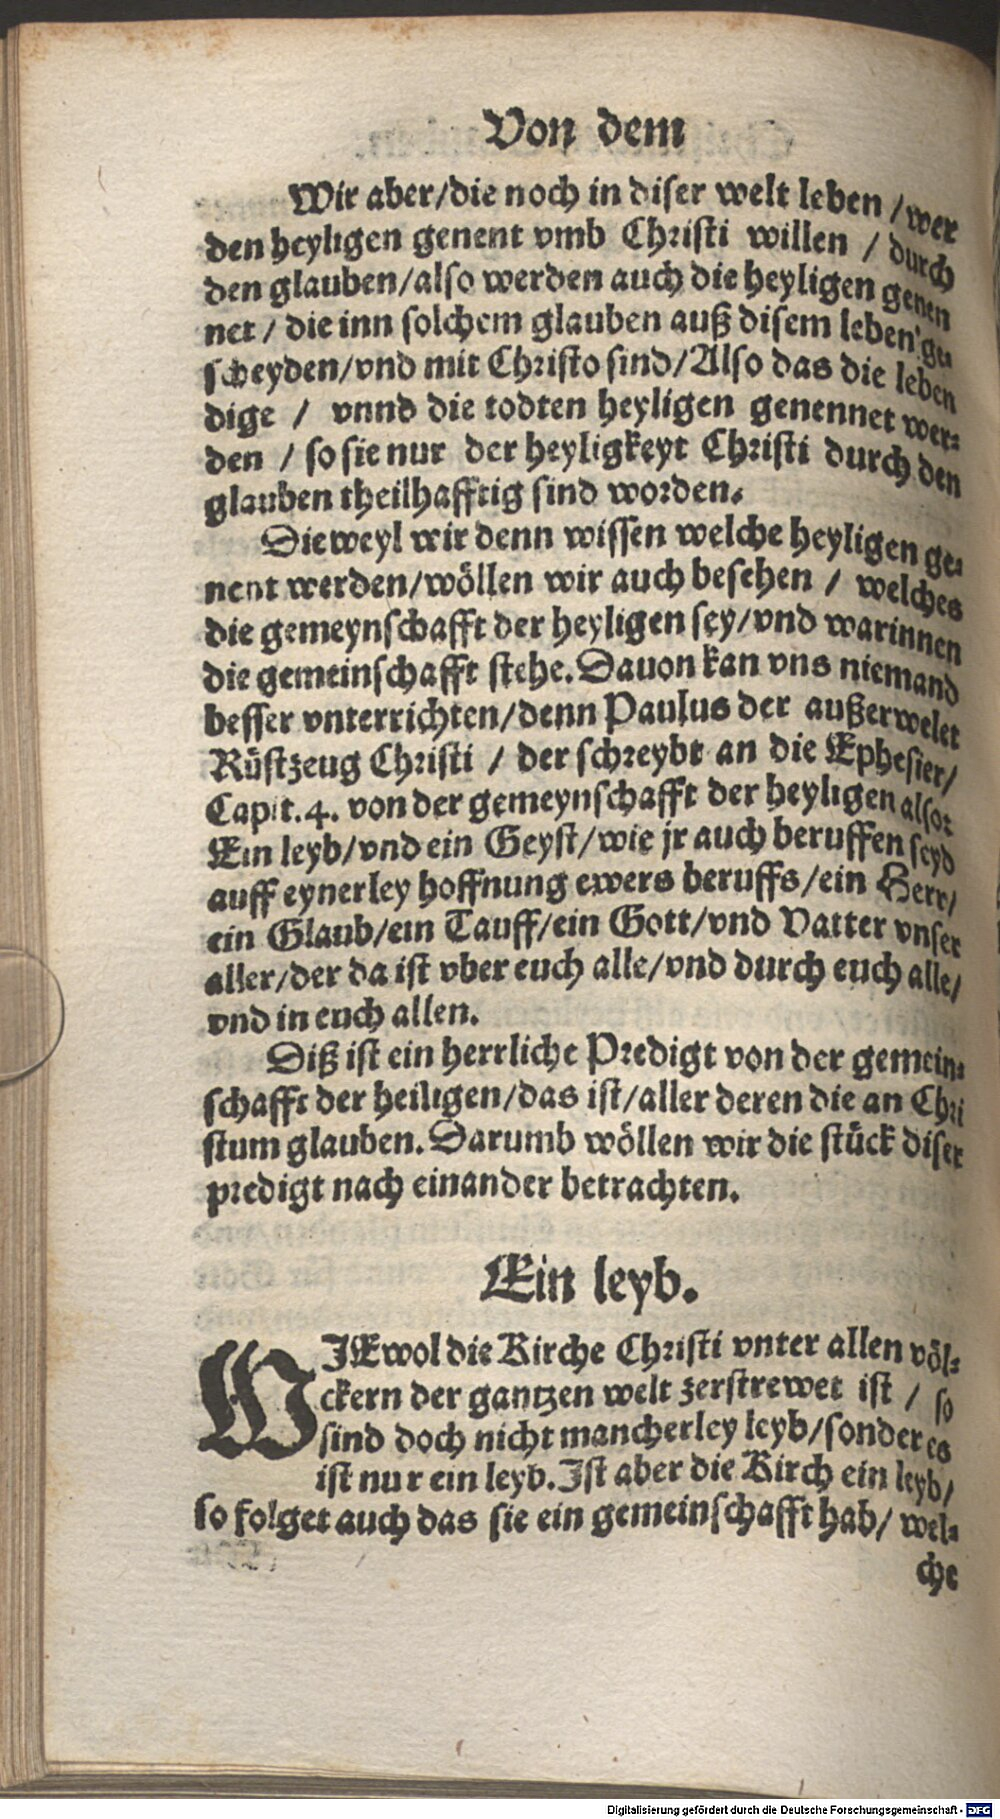 Von dem
Wir aber/die noch in diser welt leben /wer
den heyligen genent vmb Christi willen / durch
den glauben/also werden auch die heyligen genen
net / die inn solchem glauben auß disem leben ge-
scheyden/vnd mit Christo sind/Also das die leben
dige / vnnd die todten heyligen genennet wer-
den / so sie nur der heyligkeyt Christi durch den
glauben theilhafftig sind worden.
Dieweyl wir denn wissen welche heyligen ge-
nent werden/wöllen wir auch besehen / welches
die gemeynschafft der heyligen sey/vnd warinnen
die gemeinschafft stehe. Dauon kan vns niemand
besser vnterrichten/denn Paulus der außerwelet
Rüstzeug Christi / der schreybt an die Ephesier/
Capit. 4. von der gemeynschafft der heyligen also:
Ein leyb/vnd ein Geyst/wie jr auch beruffen seyd
auff eynerley hoffnung ewers beruffs/ein Herr/
ein Glaub/ein Tauff/ein Gott/vnd Vatter vnser
aller/der da ist vber euch alle/vnd durch euch alle/
vnd in euch allen.
Diß ist ein herrliche Predigt von der gemein-
schafft der heiligen/das ist/aller deren die an Chri
stum glauben. Darumb wöllen wir die stück diser
predigt nach einander betrachten.
Ein leyb.
WIEwol die Kirche Christi vnter allen völ-
ckern der gantzen welt zerstrewet ist / so
sind doch nicht mancherley leyb/sonder es
ist nur ein leyb. Ist aber die Kirch ein leyb/
so folget auch das sie ein gemeinschafft hab/ wel-
che
Digitalisierung gefördert durch die Deutsche Forschungsgemeinschaft - DFG